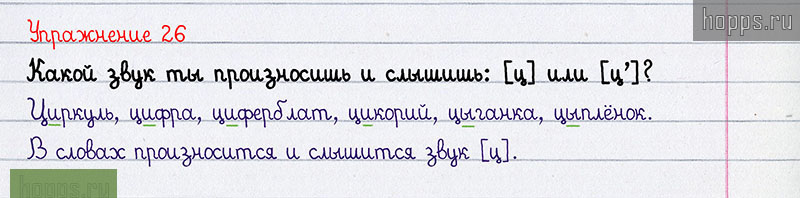 hopps.ru
Упражнение 26
Какой звук ты произносишь и слышишь: [ц] или [ц’]?
Циркуль, цифра, циферблат, цикорий, цыганка, цыплёнок.
В словах произносится и слышится звук [ц].
hopps.ru